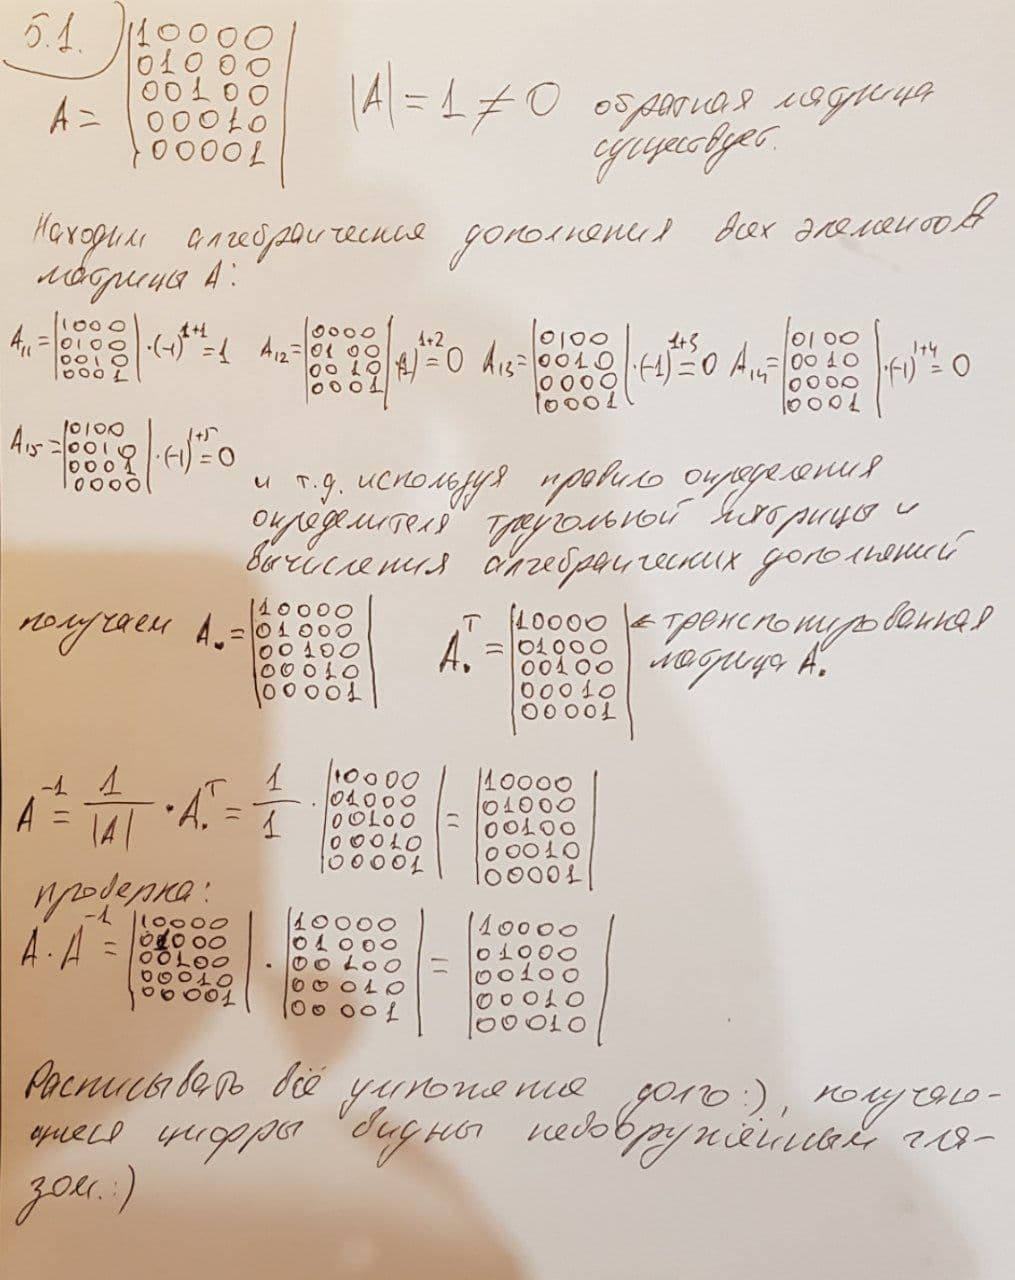 5.1.
A = |10000
01000
00100
00010
00001| |A| = 1 ≠ 0 обратная матрица
существует.
Находим алгебраические дополнения всех элементов
матрицы A:
A₁₁ = |1000
0100
0010
0001| ·(-1)¹⁺¹ = 1
A₁₂ = |0000
0100
0010
0001| ·(-1)¹⁺² = 0
A₁₃ = |0100
0010
0000
0001| ·(-1)¹⁺³ = 0
A₁₄ = |0100
0010
0000
0001| ·(-1)¹⁺⁴ = 0
A₁₅ = |0100
0010
0001
0000| ·(-1)¹⁺⁵ = 0
и т.д. используя правило определения
определителя треугольной матрицы и
вычисления алгебраических дополнений
получаем A. = |10000
01000
00100
00010
00001|
A.ᵀ = |10000
01000
00100
00010
00001| ← транспонированная
матрица A.
A⁻¹ = 1/|A| · A.ᵀ = 1/1 · |10000
01000
00100
00010
00001| = |10000
01000
00100
00010
00001|
проверка:
A · A⁻¹ = |10000
01000
00100
00010
00001| · |10000
01000
00100
00010
00001| = |10000
01000
00100
00010
00010|
Расписывать всё умножение долго:), получаю-
щиеся цифры видны невооружённым гла-
зом.:)